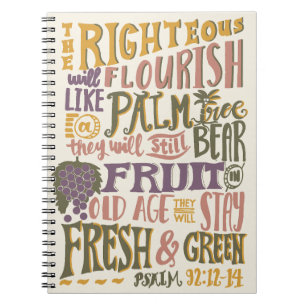 THE RIGHTEOUS
will FLOURISH
LIKE
@ PALM tree
they will Still BEAR
FRUIT IN
OLD AGE THEY WILL STAY
FRESH & GREEN
PSALM 92:12-14